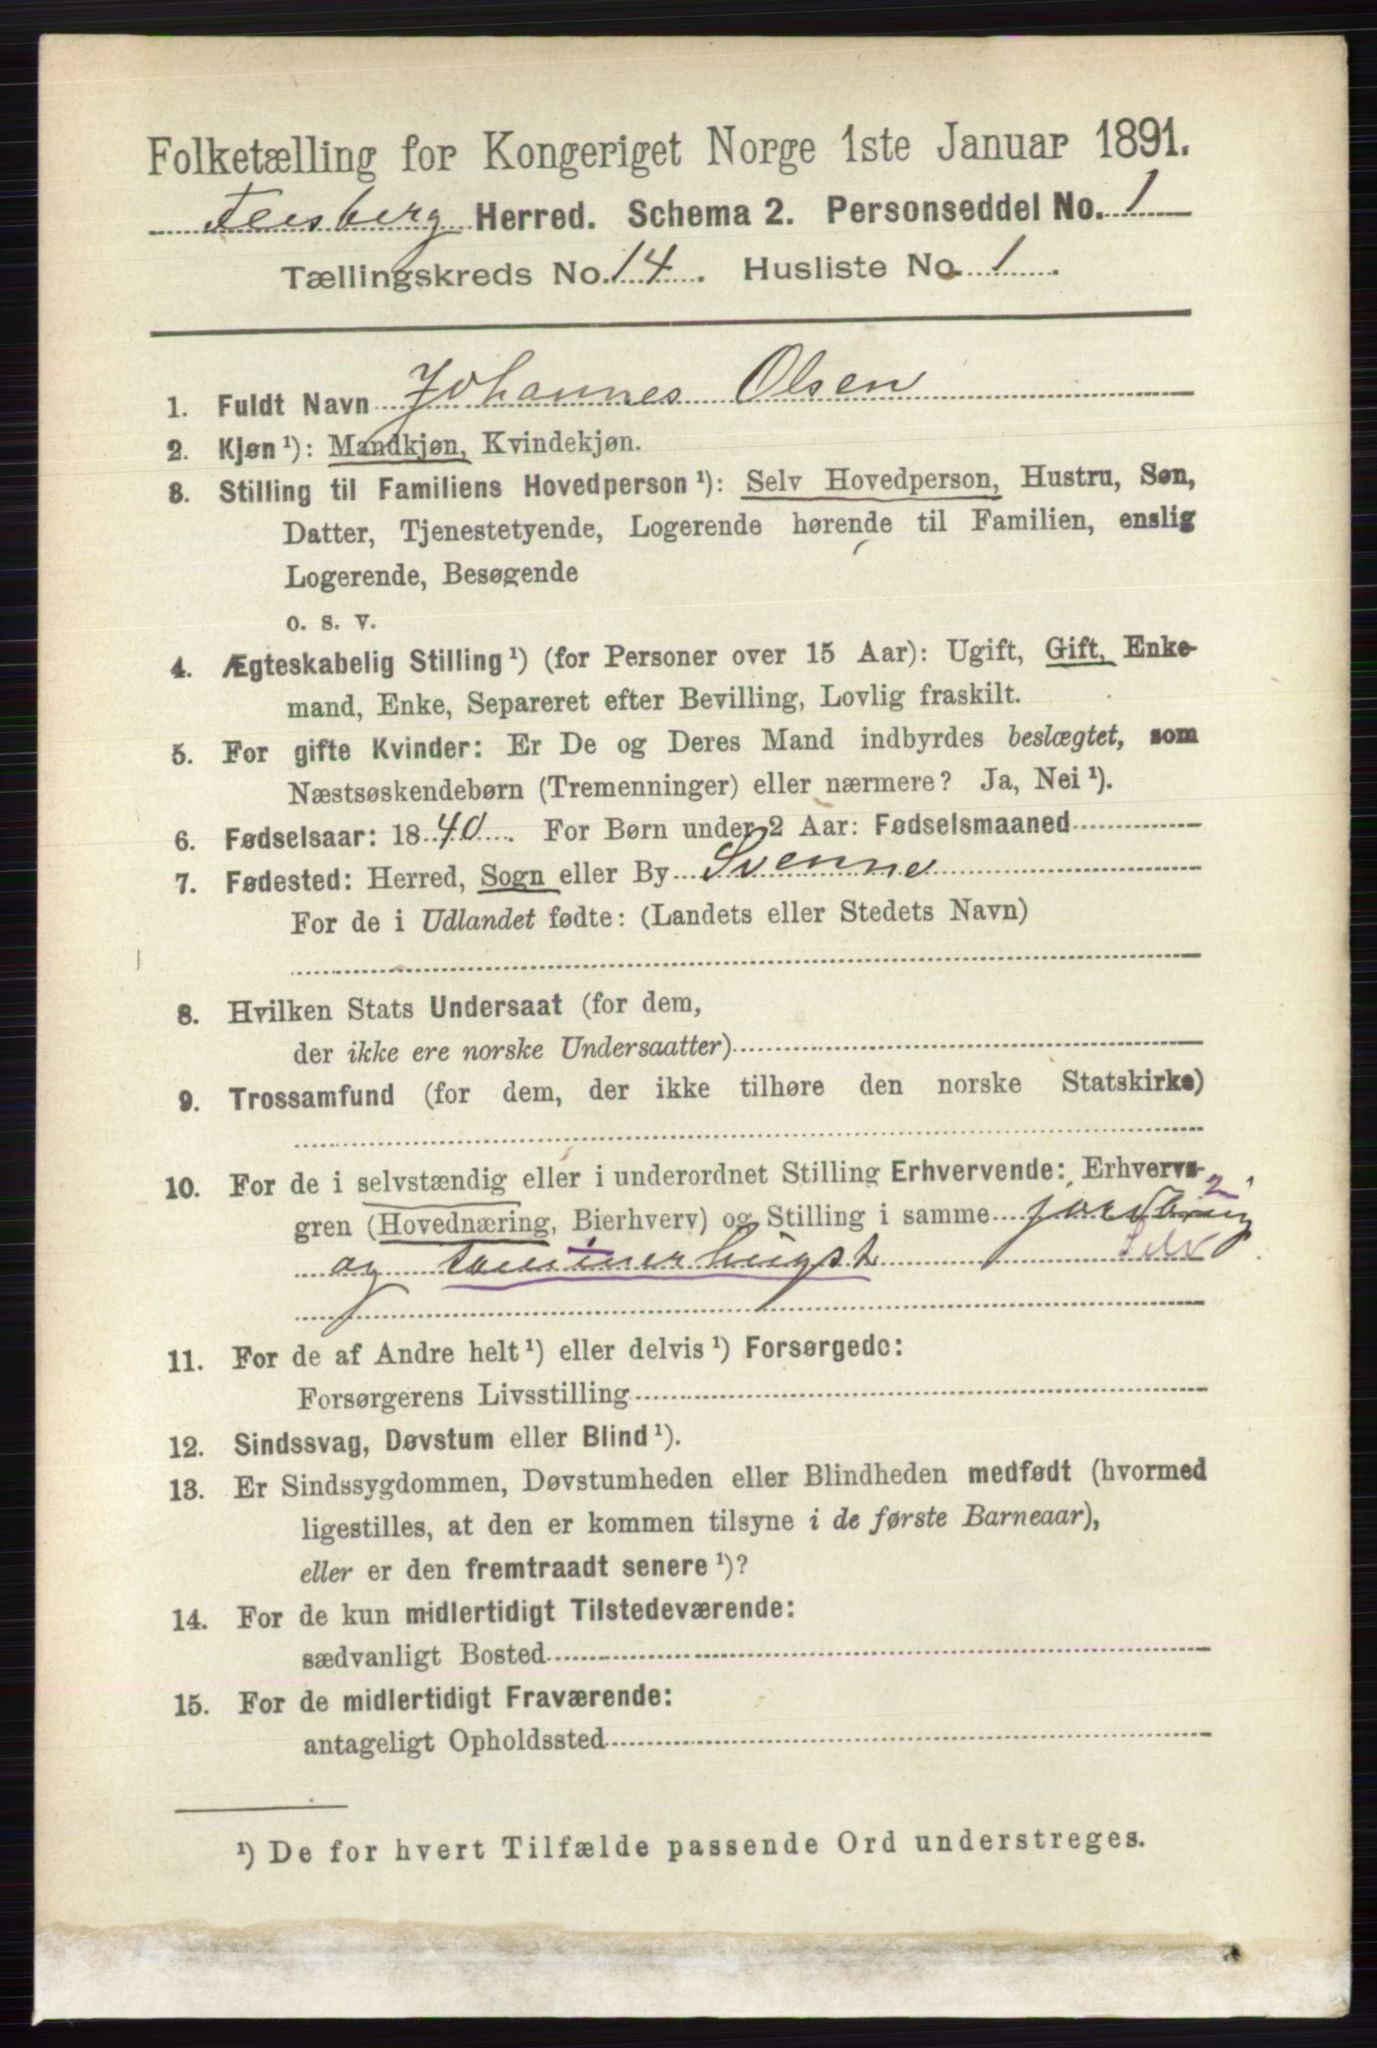 Folketælling for Kongeriget Norge 1ste Januar 1891.
Flesberg Herred. Schema 2. Personseddel No. 1
Tællingskreds No. 14. Husliste No. 1.
1. Fuldt Navn Johannes Olsen
2. Kjøn ¹): Mandkjøn, Kvindekjøn.
3. Stilling til Familiens Hovedperson ¹): Selv Hovedperson, Hustru, Søn,
Datter, Tjenestetyende, Logerende hørende til Familien, enslig
Logerende, Besøgende
o. s. v.
4. Ægteskabelig Stilling ¹) (for Personer over 15 Aar): Ugift, Gift, Enke-
mand, Enke, Separeret efter Bevilling, Lovlig fraskilt.
5. For gifte Kvinder: Er De og Deres Mand indbyrdes beslægtet, som
Næstsøskendebørn (Tremenninger) eller nærmere? Ja, Nei ¹).
6. Fødselsaar: 1840. For Børn under 2 Aar: Fødselsmaaned
7. Fødested: Herred, Sogn eller By Svenne
For de i Udlandet fødte: (Landets eller Stedets Navn)
8. Hvilken Stats Undersaat (for dem,
der ikke ere norske Undersaatter)
9. Trossamfund (for dem, der ikke tilhøre den norske Statskirke)
10. For de i selvstændig eller i underordnet Stilling Erhvervende: Erhvervs-
gren (Hovednæring, Bierhverv) og Stilling i samme 2
og tømmerhugst Selv
11. For de af Andre helt ¹) eller delvis ¹) Forsørgede:
Forsørgerens Livsstilling
12. Sindssvag, Døvstum eller Blind ¹).
13. Er Sindssygdommen, Døvstumheden eller Blindheden medfødt (hvormed
ligestilles, at den er kommen tilsyne i de første Barneaar),
eller er den fremtraadt senere ¹)?
14. For de kun midlertidigt Tilstedeværende:
sædvanligt Bosted
15. For de midlertidigt Fraværende:
antageligt Opholdssted
¹) De for hvert Tilfælde passende Ord understreges.